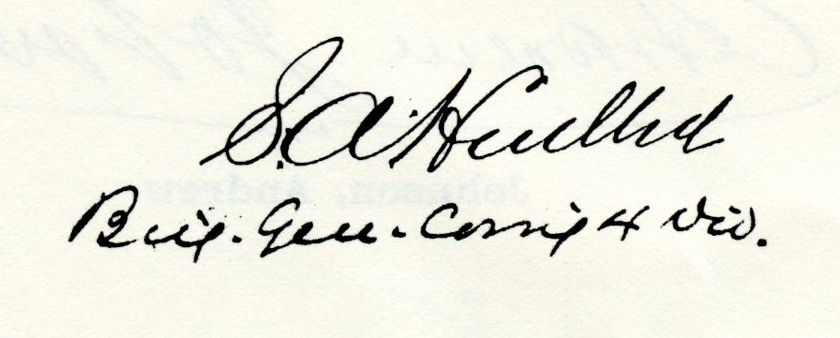 S. A. Hurlbut
Johnson, Andrew
Brig. Gen. Comdg 4 Div.